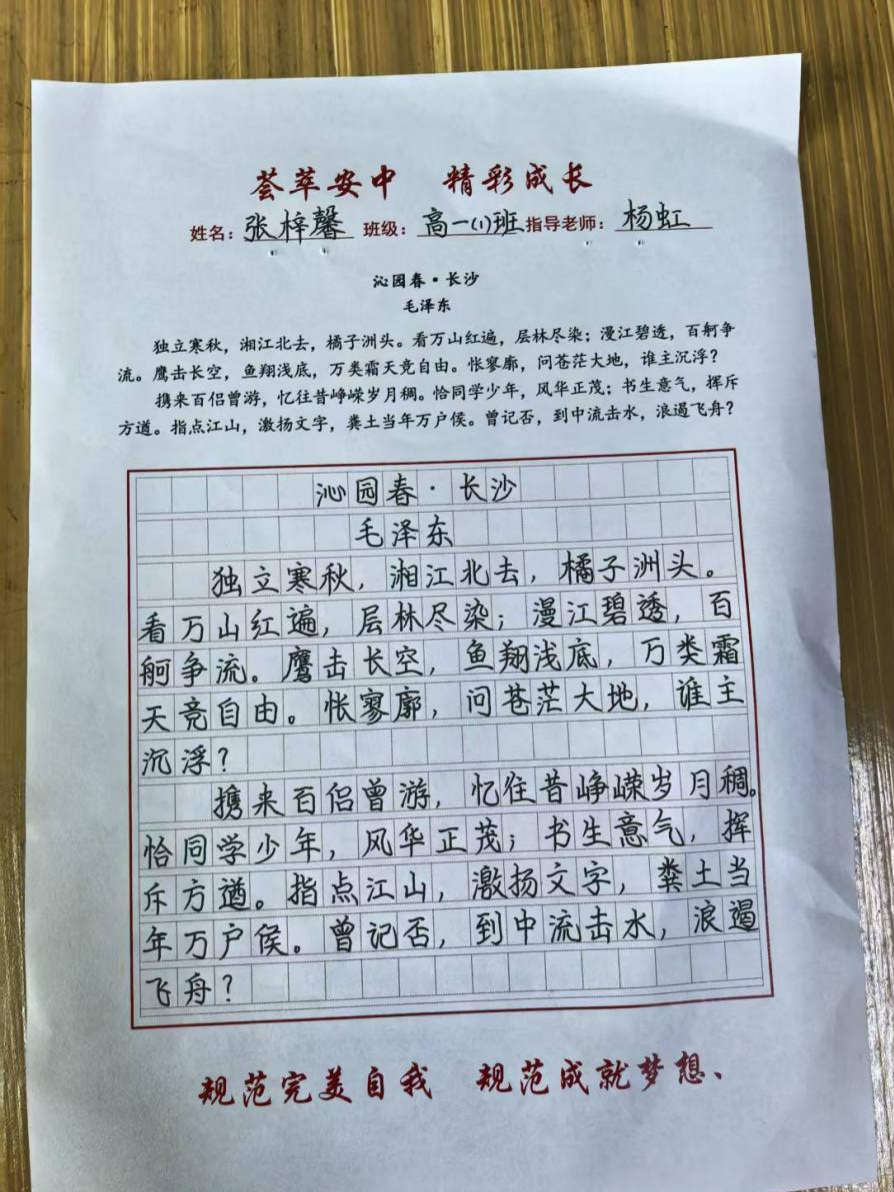 荟萃安中 精彩成长
姓名：张梓馨 班级：高一(1)班 指导老师：杨虹
沁园春·长沙
毛泽东
独立寒秋，湘江北去，橘子洲头。看万山红遍，层林尽染；漫江碧透，百舸争
流。鹰击长空，鱼翔浅底，万类霜天竞自由。怅寥廓，问苍茫大地，谁主沉浮？
携来百侣曾游，忆往昔峥嵘岁月稠。恰同学少年，风华正茂；书生意气，挥斥
方遒。指点江山，激扬文字，粪土当年万户侯。曾记否，到中流击水，浪遏飞舟？
沁园春·长沙
毛泽东
独立寒秋，湘江北去，橘子洲头。
看万山红遍，层林尽染；漫江碧透，百
舸争流。鹰击长空，鱼翔浅底，万类霜
天竞自由。怅寥廓，问苍茫大地，谁主
沉浮？
携来百侣曾游，忆往昔峥嵘岁月稠。
恰同学少年，风华正茂；书生意气，挥
斥方遒。指点江山，激扬文字，粪土当
年万户侯。曾记否，到中流击水，浪遏
飞舟？
规范完美自我 规范成就梦想、